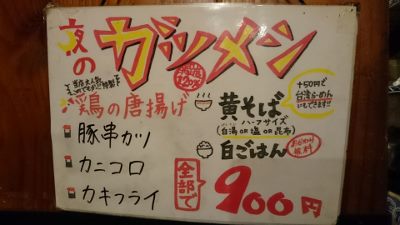 夜の ガツメン
鶏の唐揚げ
豚串カツ
カニコロ
カキフライ
黄そば
ハーフサイズ
(白湯 OR 塩 OR 昆布)
白ごはん
+50円で
台湾らーめん
にもできます!!
全部で
900円